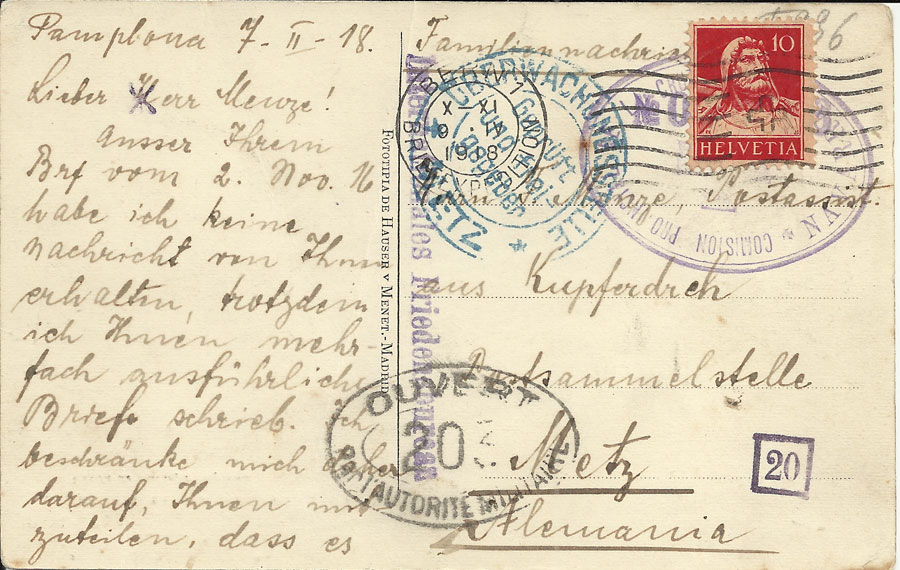 Pamplona 7-II-18.
Lieber Herr Menze!
ausser Ihrem
Brf vom 2. Nov. 16
habe ich keine
nachricht von Ihnen
erhalten, trotzdem
ich Ihnen mehr-
fach ausführliche
Briefe schrieb. Ich
beschränke mich daher
darauf, Ihnen mit
zuteilen, dass es
FOTOTIPIA DE HAUSER Y MENET.-MADRID
Familiennachricht
Menze, Postassist.
aus Kupferdreh
Postsammelstelle
Metz
Alemania
10
HELVETIA
ÜBERWACHUNGSSTELLE
METZ
Geprüft
und
freizugeben
BERN 1
BRIEFEXPEDITION
1918
Internationales Friedensbureau
COMISION PRO
OUVERT
PAR AUTORITÉ MILITAIRE
20